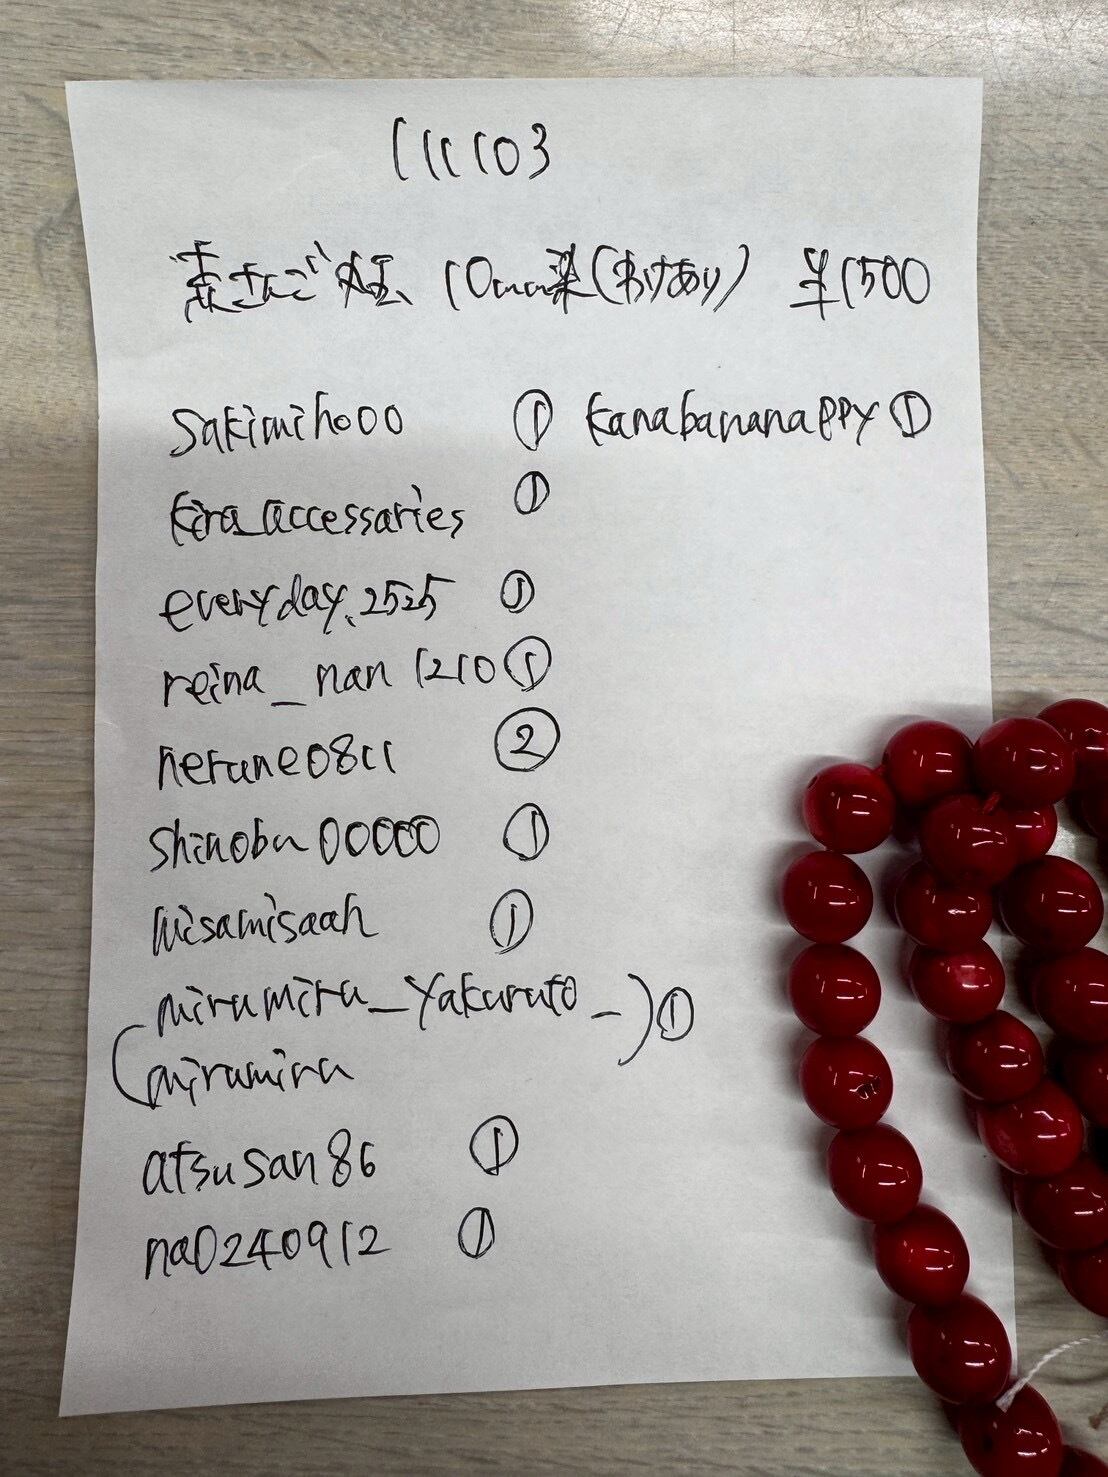 111103
素さんご 丸玉 10mm染(わけあり) 半1500
sakimiho00 ① kanabananappy ①
kira_accessaries ①
everyday.2525 ①
reina_nan1210 ①
nerune0811 ②
shinobu00000 ①
misamisaah ①
(mirumiru_yakuruto_) ①
mirumiru
atsusan86 ①
na0240912 ①